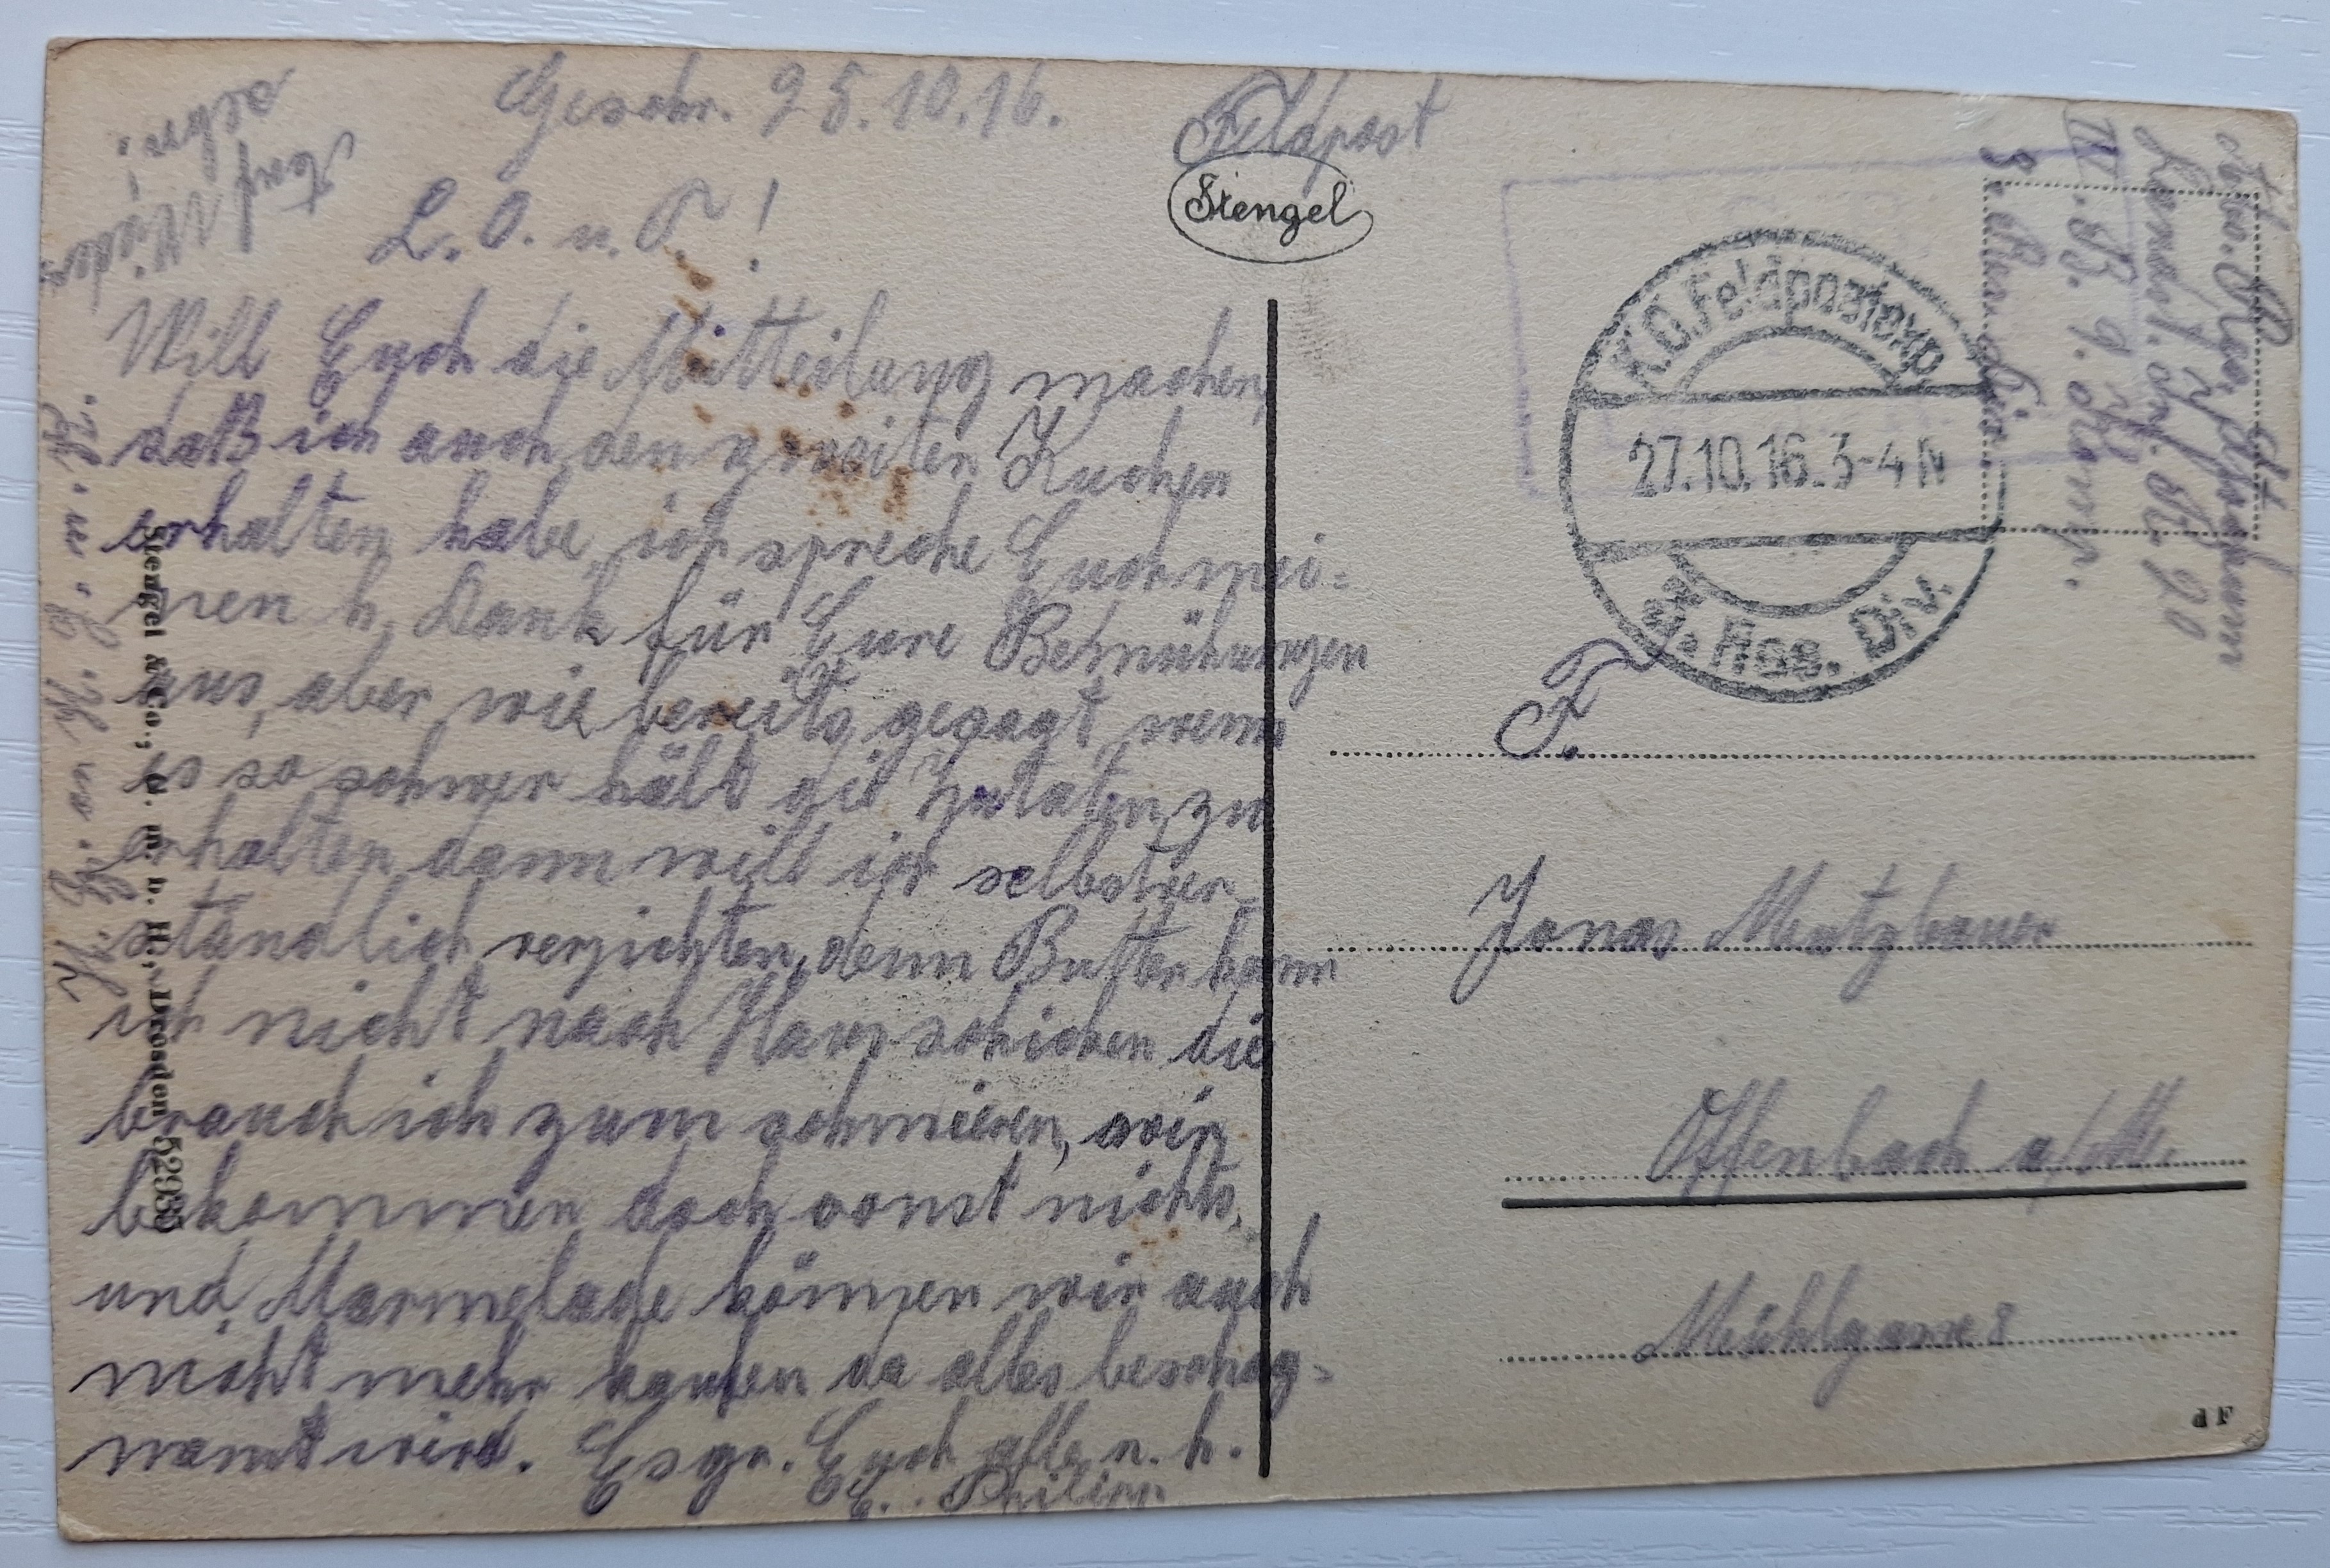 Geschr. 25.10.16.
Feldpost
Auf
Wieder
sehn!
L. O. u. T!
Will Euch die Mitteilung machen,
daß ich auch den zweiten Kuchen
erhalten habe, ich spreche Euch mei=
nen h. Dank für Eure Bemühungen
aus, aber wie bereits gesagt, wenn
es so schwer hält die Zutaten zu
erhalten, dann will ich selbstver-
ständlich verzichten, denn Butter kann
ich nicht nach Haus schicken die
brauch ich zum schmieren, wir
bekommen doch sonst nichts,
und Marmelade können wir auch
nicht mehr kaufen da alles beschlag=
namt wird. Es gr. Euch alle n. h.
E. Philipp
Stengel & Co., G. m. b. H., Dresden 52935
Stengel
K.D. Feldpostexp
27.10.16. 3-4 N
d. Res. Div.
Landst. Inf. Bt.
IV. B. 9. Komp.
F.
Jonas Mutzbauer
Offenbach a/M.
Mühlgasse 8
d F